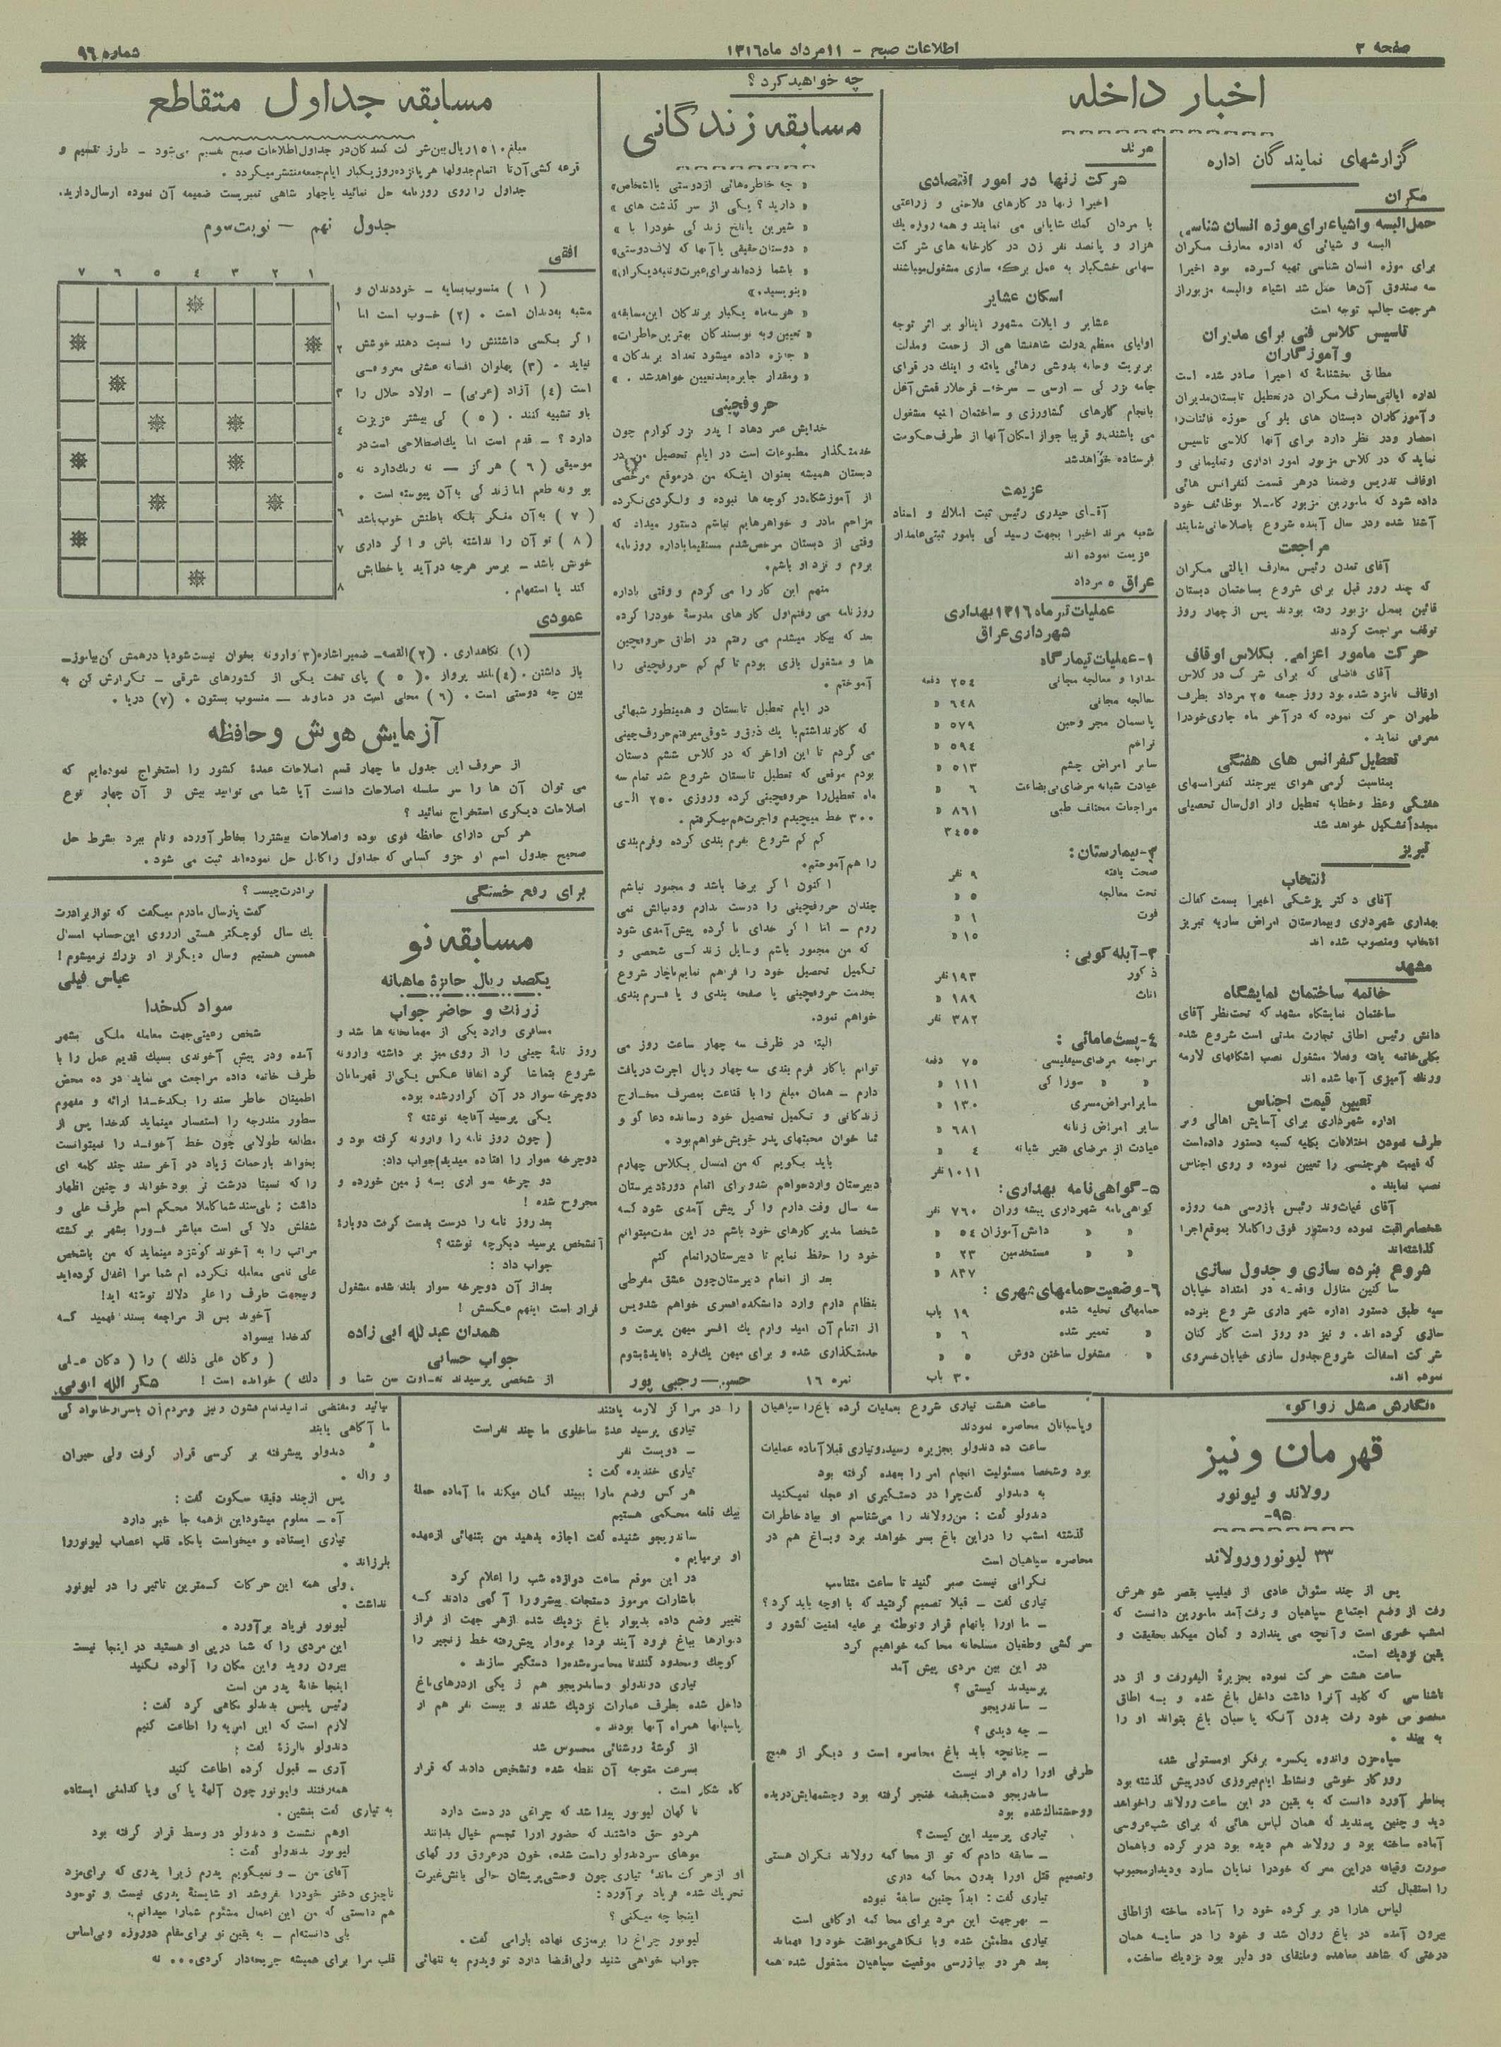 صفحه ۲
اطلاعات صبح - ۱۱ مرداد ماه ۱۳۱۶
شماره ۹۶
اخبار داخله
گزارشهای نمایندگان اداره
مکران
حمل البسه و اشیاء برای موزه انسان شناسی
البسه و اشیائی که اداره معارف مکران
برای موزه انسان شناسی تهیه کرده بود اخیرا
سه صندوق آن‌ها حمل شد اشیاء و البسه مزبور از
هر جهت جالب توجه است
تاسیس کلاس فنی برای مدیران
و آموزگاران
مطابق بخشنامهٔ که اخیرا صادر شده است
اداره ایالتی معارف مکران در تعطیل تابستان مدیران
نماید که در کلاس مزبور امور اداری و تعلیماتی و
اوقاف تدریس و ضمنا در هر قسمت کنفرانس هائی
داده شود که مامورین مزبور کاملا بوظائف خود
آشنا شده و در سال آینده شروع باصلاحاتی نمایند
مراجعت
آقای تمدن رئیس معارف ایالتی مکران
که چند روز قبل برای شروع بساختمان دبستان
قائین بمحل مزبور رفته بودند پس از چهار روز
توقف مراجعت کردند
حرکت مامور اعزامی بکلاس اوقاف
آقای فاضلی که برای شرکت در کلاس
اوقاف نامزد شده بود روز جمعه ۲۵ مرداد بطرف
طهران حرکت نموده که در آخر ماه جاری خود را
معرفی نماید .
تعطیل کنفرانس های هفتگی
بمناسبت گرمی هوای بیرجند کنفرانسهای
هفتگی وعظ و خطابه تعطیل و از اول سال تحصیلی
مجددا تشکیل خواهد شد
تبریز
انتخاب
آقای دکتر پوشکی اخیرا بسمت کفالت
بهداری شهرداری و بیمارستان امراض ساریه تبریز
انتخاب و منصوب شده اند
مشهد
خاتمه ساختمان نمایشگاه
ساختمان نمایشگاه مشهد که تحت نظر آقای
دانش رئیس اطاق تجارت مدتی است شروع شده
بکلی خاتمه یافته و فعلا مشغول نصب اشکافهای لازمه
و رنگ آمیزی آنها شده اند
تعیین قیمت اجناس
اداره شهرداری برای آسایش اهالی و بر
طرف نمودن اختلافات بکلیه کسبه دستور داده است
که قیمت هر جنسی را تعیین نموده و روی اجناس
نصب نمایند .
آقای غیاثوند رئیس بازرسی همه روزه
شخصا مراقبت نموده و دستور فوق را کاملا بموقع اجرا
گذاشته‌اند
شروع بنرده سازی و جدول سازی
ساکنین منازل واقعه در امتداد خیابان
سپه طبق دستور اداره شهرداری شروع بنرده
سازی کرده اند. و نیز دو روز است کارکنان
شرکت اسفالت شروع بجدول سازی خیابان خسروی
نموده اند.
مرند
شرکت زنها در امور اقتصادی
اخیرا زنها در کارهای فلاحتی و زراعتی
با مردان کمک شایانی می نمایند و همه روزه یک
هزار و پانصد نفر زن در کارخانه های شرکت
سهامی خشکبار به عمل برگه سازی مشغول میباشند
اسکان عشایر
عشایر و ایلات مشهور اینالو بر اثر توجه
اولیای معظم دولت شاهنشاهی از زحمت و مذلت
بربریت و خانه بدوشی رهائی یافته و اینک در قرای
بانجام کارهای کشاورزی و ساختمان ابنیه مشغول
می باشند و قریبا جواز اسکان آنها از طرف حکومت
فرستاده خواهد شد
عزیمت
آقای حیدری رئیس ثبت املاک و اسناد
شعبه مرند اخیرا بجهت رسیدگی بامور ثبتی عامدار
عزیمت نموده اند
عراق ۵ مرداد
عملیات تیر ماه ۱۳۱۶ بهداری
شهرداری عراق
۱- عملیات تیمارگاه
مداوا و معالجه مجانی ۲۵۴ دفعه
معالجه مجانی ۶۴۸ »
پانسمان مجروحین ۵۷۹ »
تراخم ۵۹۴ »
سایر امراض چشم ۵۱۳ »
عیادت شبانه مرضای بی بضاعت ۶ »
مراجعات مختلف طبی ۸۶۱ »
۳۴۵۵
۲- بیمارستان:
صحت یافته ۹ نفر
تحت معالجه ۵ »
فوت ۱ »
۱۵ »
۳- آبله کوبی :
ذکور ۱۹۳ نفر
اناث ۱۸۹ »
۳۸۲ نفر
۴- پست مامائی :
مراجعه مرضای سیفلیسی ۷۵ دفعه
» » سوزاکی ۱۱۱ »
سایر امراض مسری ۱۳۰ »
سایر امراض زنانه ۶۸۱ »
عیادت از مرضای فقیر شبانه ۴ »
۱۰۱۱ نفر
۵- گواهی نامه بهداری:
گواهی نامه شهرداری پیشه وران ۷۶۰ نفر
» » دانش آموزان ۵۴ »
» » مستخدمین ۲۳ »
۸۳۷ »
۶- وضعیت حمامهای شهری :
حمامهای تخلیه شده ۱۹ باب
» تعمیر شده ۶ »
» مشغول ساختن دوش ۵ »
۳۰ باب
چه خواهید کرد ؟
مسابقه زندگانی
« چه خاطره‌هائی از دوستی با اشخاص»
« دارید ؟ یکی از سر گذشت های »
« شیرین یا تلخ زندگی خود را با »
« دوستان حقیقی یا آنها که لاف دوستی»
« با شما زده‌اند برای عبرت و تنبه دیگران»
«بنویسید.»
« هر سه ماه یکبار برندگان این مسابقه»
« تعیین و به نویسندگان بهترین خاطرات»
« جایزه داده میشود تعداد برندگان »
« و مقدار جایزه بعد تعیین خواهد شد . »
حروفچینی
خدایش عمر دهاد ! پدر بزرگوارم چون
خدمتگذار مطبوعات است در ایام تحصیل من در
دبستان همیشه بعنوان اینکه من در موقع مرخصی
از آموزشگاه در کوچه ها نبوده و ولگردی نکرده
مزاحم مادر و خواهرهایم نباشم دستور میداد که
وقتی از دبستان مرخص شدم مستقیما باداره روزنامه
بروم و نزد او باشم.
منهم این کار را می کردم و وقتی باداره
روزنامه می رفتم اول کارهای مدرسهٔ خود را کرده
بعد که بیکار میشدم می رفتم در اطاق حروفچین
ها و مشغول بازی بودم تا کم کم حروفچینی را
آموختم .
در ایام تعطیل تابستان و همینطور شبهائی
که کار نداشتم با یک ذوق و شوقی میرفتم حروف چینی
می کردم تا این اواخر که در کلاس ششم دبستان
بودم موقعی که تعطیل تابستان شروع شد تمام سه
ماه تعطیل را حروفچینی کرده و روزی ۲۵۰ الی
۳۰۰ خط میچیدم و اجرت هم میگرفتم .
کم کم شروع بفرم بندی کرده و فرم بندی
را هم آموختم.
اکنون اگر برضا باشد و مجبور نباشم
چندان حروفچینی را دوست ندارم و دنبالش نمی
روم - اما اگر خدای ناکرده پیش آمدی شود
که من مجبور باشم وسایل زندگی شخصی و
تکمیل تحصیل خود را فراهم نمایم ناچار شروع
بخدمت حروفچینی یا صفحه بندی و یا فرم بندی
خواهم نمود.
البته در ظرف سه چهار ساعت روز می
توانم با کار فرم بندی سه چهار ریال اجرت دریافت
دارم - همان مبلغ را با قناعت بمصرف مخارج
زندگانی و تکمیل تحصیل خود رسانده دعا گو و
ثنا خوان محبتهای پدر خویش خواهم بود .
باید بگویم که من امسال بکلاس چهارم
دبیرستان وارد خواهم شد و برای اتمام دوره دبیرستان
سه سال وقت دارم و اگر پیش آمدی شود که
شخصا مدیر کارهای خود باشم در این مدت میتوانم
خود را حفظ نمایم تا دبیرستان را تمام کنم
بعد از اتمام دبیرستان چون عشق مفرطی
بنظام دارم وارد دانشکده افسری خواهم شد و پس
از اتمام آن امید وارم یک افسر میهن پرست و
خدمتگذاری شده و برای میهن یک فرد با فایده بشوم
نمره ۱۶ حسن - رجبی پور
مسابقه جداول متقاطع
مبلغ ۱۵۱۰ ریال بین شرکت کنندگان در جداول اطلاعات صبح تقسیم می‌شود - طرز تقسیم و
قرعه کشی آن تا اتمام جدولها هر پانزده روز یکبار ایام جمعه منتشر میگردد .
جداول را روی روزنامه حل نمائید با چهار شاهی تمبر پست ضمیمه آن نموده ارسال دارید.
جدول نهم - نوبت سوم
افقی
۱ ۲ ۳ ۴ ۵ ۶ ۷
۱
۲
۳
۴
۵
۶
۷
۸
( ۱ ) منسوب بسایه - خرد دندان و
مشبه به دندان است . (۲) خوب است اما
اگر بکسی داشتنش را نسبت دهند خوشش
نیاید . (۳) پهلوان افسانه عشقی معروفی
است (۴) آزاد (عربی) - اولاد حلال را
باو تشبیه کنند . ( ۵ ) کی بیشتر عزیزت
دارد ؟ - قدم است اما یک اصطلاحی است در
موسیقی ( ۶ ) هرگز - نه رنگ دارد نه
بو و نه طعم اما زندگی به آن پیوسته است .
( ۷ ) به آن منگر بلکه باطنش خوب باشد
( ۸ ) تو آن را نداشته باش و اگر داری
خوش باشد - برسر هر چه درآید یا خطابش
کند یا استفهام .
عمودی
(۱) نگاهداری . (۲) القصه - ضمیر اشاره (۳) وارونه بخوان نیست شود یا درهمش کن بیاموز -
باز داشتن . (۴) بلند پرواز . ( ۵ ) پای تخت یکی از کشورهای شرقی - تکرارش کن به
بین چه دوستی است . ( ۶ ) محلی است در دماوند - منسوب بستون . (۷) دریا .
آزمایش هوش و حافظه
از حروف این جدول ما چهار قسم اصلاحات عمدهٔ کشور را استخراج نموده‌ایم که
می توان آن ها را سر سلسله اصلاحات دانست آیا شما می توانید بیش از آن چهار نوع
اصلاحات دیگری استخراج نمائید ؟
هر کس دارای حافظه قوی بوده و اصلاحات بیشتر را بخاطر آورده و نام ببرد بشرط حل
صحیح جدول اسم او جزو کسانی که جداول را کامل حل نموده‌اند ثبت می شود .
برای رفع خستگی
مسابقه نو
یکصد ریال جائزهٔ ماهیانه
زرنگ و حاضر جواب
مسافری وارد یکی از مهمانخانه ها شد و
روز نامهٔ چینی را از روی میز بر داشته وارونه
شروع بتماشا کرد اتفاقا عکس یکی از قهرمانان
دوچرخه سوار در آن گراور شده بود.
یکی پرسید آقا چه نوشته ؟
( چون روز نامه را وارونه گرفته بود و
دوچرخه سوار را افتاده میدید) جواب داد:
دو چرخه سواری بسه زمین خورده و
مجروح شده !
بعد روز نامه را درست بدست گرفت دوباره
آنشخص پرسید دیگر چه نوشته ؟
جواب داد :
بعد از آن دوچرخه سوار بلند شده مشغول
فرار است اینهم عکسش !
همدان عبدالله ابی زاده
جواب حسابی
از شخصی پرسیدند تفاوت سن شما و
برادرت چیست ؟
گفت پارسال مادرم میگفت که تو از برادرت
یک سال کوچکتر هستی از روی این حساب امسال
همسن هستیم و سال دیگر از او بزرگ تر میشوم !
عباس فیلی
سواد کدخدا
شخص رعیتی جهت معامله ملکی بشهر
آمده و در پیش آخوندی بسبک قدیم عمل را با
طرف خاتمه داده مراجعت می نماید در ده محض
اطمینان خاطر سند را بکدخدا ارائه و مفهوم
سطور مندرجه را استفسار مینماید کدخدا پس از
مطالعه طولانی چون خط آخوند را نمیتوانست
بخواند بازحمات زیاد در آخر سند چند کلمه ای
را که نسبتا درشت تر بود خواند و چنین اظهار
داشت : بلی سند شما کاملا محکم اسم طرف علی و
شغلش دلاکی است مباشر فورا بشهر بر گشته
مراتب را به آخوند گوشزد مینماید که من با شخص
علی نامی معامله نکرده ام شما مرا اغفال کرده‌اید
و بیجهت طرف را علی دلاک نوشته اید!
آخوند پس از مراجعه بسند فهمید که
کدخدا بیسواد
( وکان علی ذلک ) را ( دکان علی
دلک ) خوانده است ! شکر الله ایوبی
«نگارش میشل زواکو»
قهرمان ونیز
رولاند و لیونور
-۹۵
۳۳ لیونور و رولاند
پس از چند سئوال عادی از فیلیپ بقصر شوهرش
رفت از وضع اجتماع سپاهیان و رفت آمد مامورین دانست که
امشب خبری است و آنچه می پندارد و گمان میکند بحقیقت و
یقین نزدیک است.
ساعت هشت حرکت نموده بجزیرهٔ الیورفت و از در
ناشناسی که کلید آنرا داشت داخل باغ شده و به اطاق
مخصوص خود رفت بدون آنکه پاسبان باغ بتواند او را
به بیند .
سپاه حزن و اندوه یکسره برفکر او مستولی شد،
روزگار خوشی و نشاط ایام فیروزی که در پیش گذشته بود
بخاطر آورد دانست که به یقین در این ساعت رولاند را خواهد
دید و چنین پسندید که همان لباس هائی که برای شب عروسی
آماده ساخته بود و رولاند هم دیده بود در بر کرده و با همان
صورت و قیافه در این معبر که خود را نمایان سازد و دیدار محبوب
را استقبال کند
لباس هارا در بر کرده خود را آماده ساخته از اطاق
بیرون آمده در باغ روان شد و خود را در سایه همان
درختی که شاهد معاهده و ملتقای دو دلبر بود نزدیک ساخت.
ساعت هشت تیاری شروع بعملیات کرده باغ را سپاهیان
و پاسبانان محاصره نمودند
ساعت ده دندولو بجزیره رسید و تیاری قبلا آماده عملیات
بود و شخصا مسئولیت انجام امر را بعهده گرفته بود
به دندولو گفت چرا در دستگیری او عجله نمیکنید
دندولو گفت : من رولاند را می‌شناسم او بیاد خاطرات
گذشته امشب را در این باغ بسر خواهد برد و باغ هم در
محاصره سپاهیان است
نگرانی نیست صبر کنید تا ساعت متناسب
تیاری گفت - قبلا تصمیم گرفتید که با او چه باید کرد ؟
- ما اورا باتهام فرار و توطئه بر علیه امنیت کشور و
سرکشی و طغیان مسلحانه محاکمه خواهیم کرد
در این بین مردی پیش آمد
پرسیدند کیستی ؟
- ساندریجو
- چه دیدی ؟
- چنانچه باید باغ محاصره است و دیگر از هیچ
طرفی اورا راه فرار نیست
ساندریجو دست بقبضه خنجر گرفته بود و چشمهایش دریده
و وحشتناک شده بود
تیاری پرسید این کیست ؟
- سابقه دادم که تو از محاکمه رولاند نگران هستی
و تصمیم قتل اورا بدون محاکمه داری
تیاری گفت : ابدأ چنین سابقهٔ نبوده
- بهر جهت این مرد برای محاکمه او کافی است
تیاری مطمئن شده و با نگاهی موافقت خود را فهماند
بعد هر دو ببازرسی موقعیت سپاهیان مشغول شده همه
را در مراکز لازمه یافتند
تیاری پرسید عدهٔ ساخلوی ما چند نفراست
- دویست نفر
تیاری خندیده گفت :
هر کس وضع مارا ببیند گمان میکند ما آماده حملهٔ
بیک قلعه محکمی هستیم
ساندریجو شنیده گفت اجازه بدهید من بتنهائی از عهده
او برمیایم .
در این موقع ساعت دوازده شب را اعلام کرد
باشارات مرموز دستجات پیشرو را آگهی دادند که
تغییر وضع داده بدیوار باغ نزدیک شده از هر جهت از فراز
دیوارها بباغ فرود آیند
کوچک و محدود کنند تا محاصره شده را دستگیر سازند .
تیاری دوندولو و ساندریجو هم زیکی از درهای باغ
داخل شده بطرف عمارات نزدیک شدند و بیست نفر هم از
پاسبانها همراه آنها بودند .
از گوشهٔ روشنائی محسوس شد
بسرعت متوجه آن نقطه شده و تشخیص دادند که قرار
گاه شکار است .
ناگهان لیونور پیدا شد که چراغی در دست دارد
هر دو حق داشتند که حضور اورا تجسم خیال بدانند
موهای سر دندولو راست شده، خون در عروق و رگهای
او از حرکت ماند! تیاری چون وحشی پریشان حالی باتش غیرت
تحریک شده فریاد برآورد :
اینجا چه میکنی ؟
لیونور چراغ را برمیزی نهاده بارامی گفت.
جواب خواهی شنید ولی اقتضا دارد تو و پدرم به تنهائی
بیائید و مقتضی ندانید تمام قشون و نیز و مردم آن باسرار خانواده گی
ما آگاهی یابند
دندولو پیشرفته بر کرسی قرار گرفت ولی حیران
و واله .
پس از چند دقیقه سکوت گفت :
آه - معلوم میشود این از همه جا خبر دارد
تیاری ایستاده و میخواست با نگاه قلب اعصاب لیونور را
بلرزاند .
ولی همه این حرکات کمترین تاثیر را در لیونور
نداشت .
لیونور فریاد برآورد .
این مردی را که شما در پی او هستید در اینجا نیست
بیرون روید و این مکان را آلوده نکنید
اینجا خانهٔ پدر من است
رئیس پلیس بدندلو نگاهی کرد گفت :
لازم است که این امریه را اطاعت کنیم
دندولو باارزهٔ گفت :
آری - قبول کرده اطاعت کنید
همه رفتند و لیونور چون آلهٔ پاکی و یا گدائی ایستاده
به تیاری گفت بنشین .
اوهم نشست و دندولو در وسط قرار گرفته بود
لیونور بدندلو گفت :
آقای من - و نمیگویم پدرم زیرا پدری که برای مزد
ناچیزی دختر خود را بفروشد او شایستهٔ پدری نیست و تو خود
هم دانستی که من این اعمال مشئوم شمارا میدانم،
بلی دانسته‌ام - به یقین تو برای مقام دو روزه و بی اساس
قلب مرا برای همیشه جریحه‌دار کردی... نه